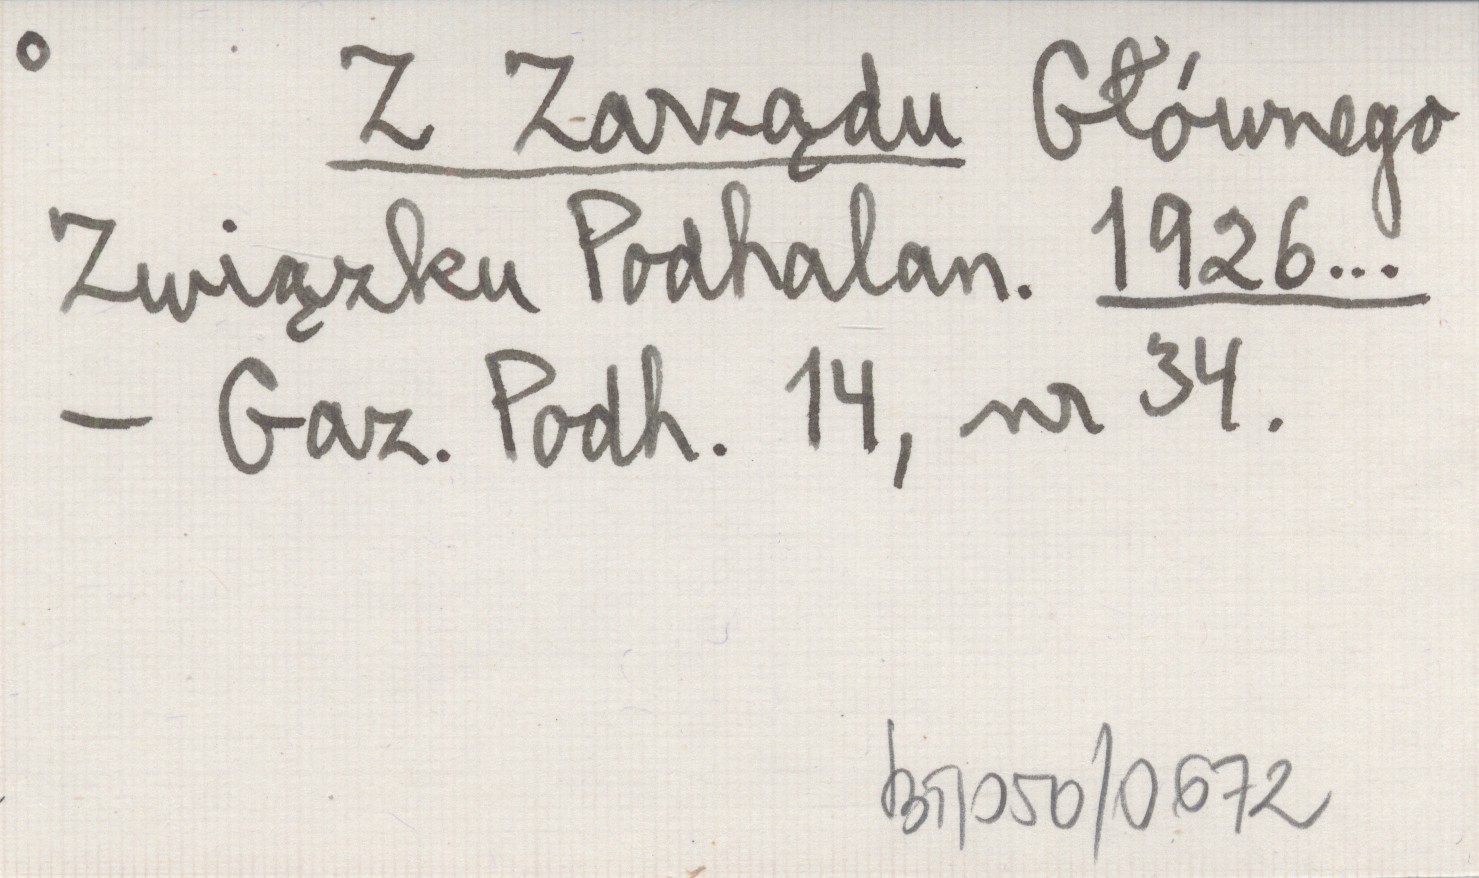 Z Zarządu Głównego
Związku Podhalan. 1926...
- Gaz. Podh. 14, nr 34.
/050/0672